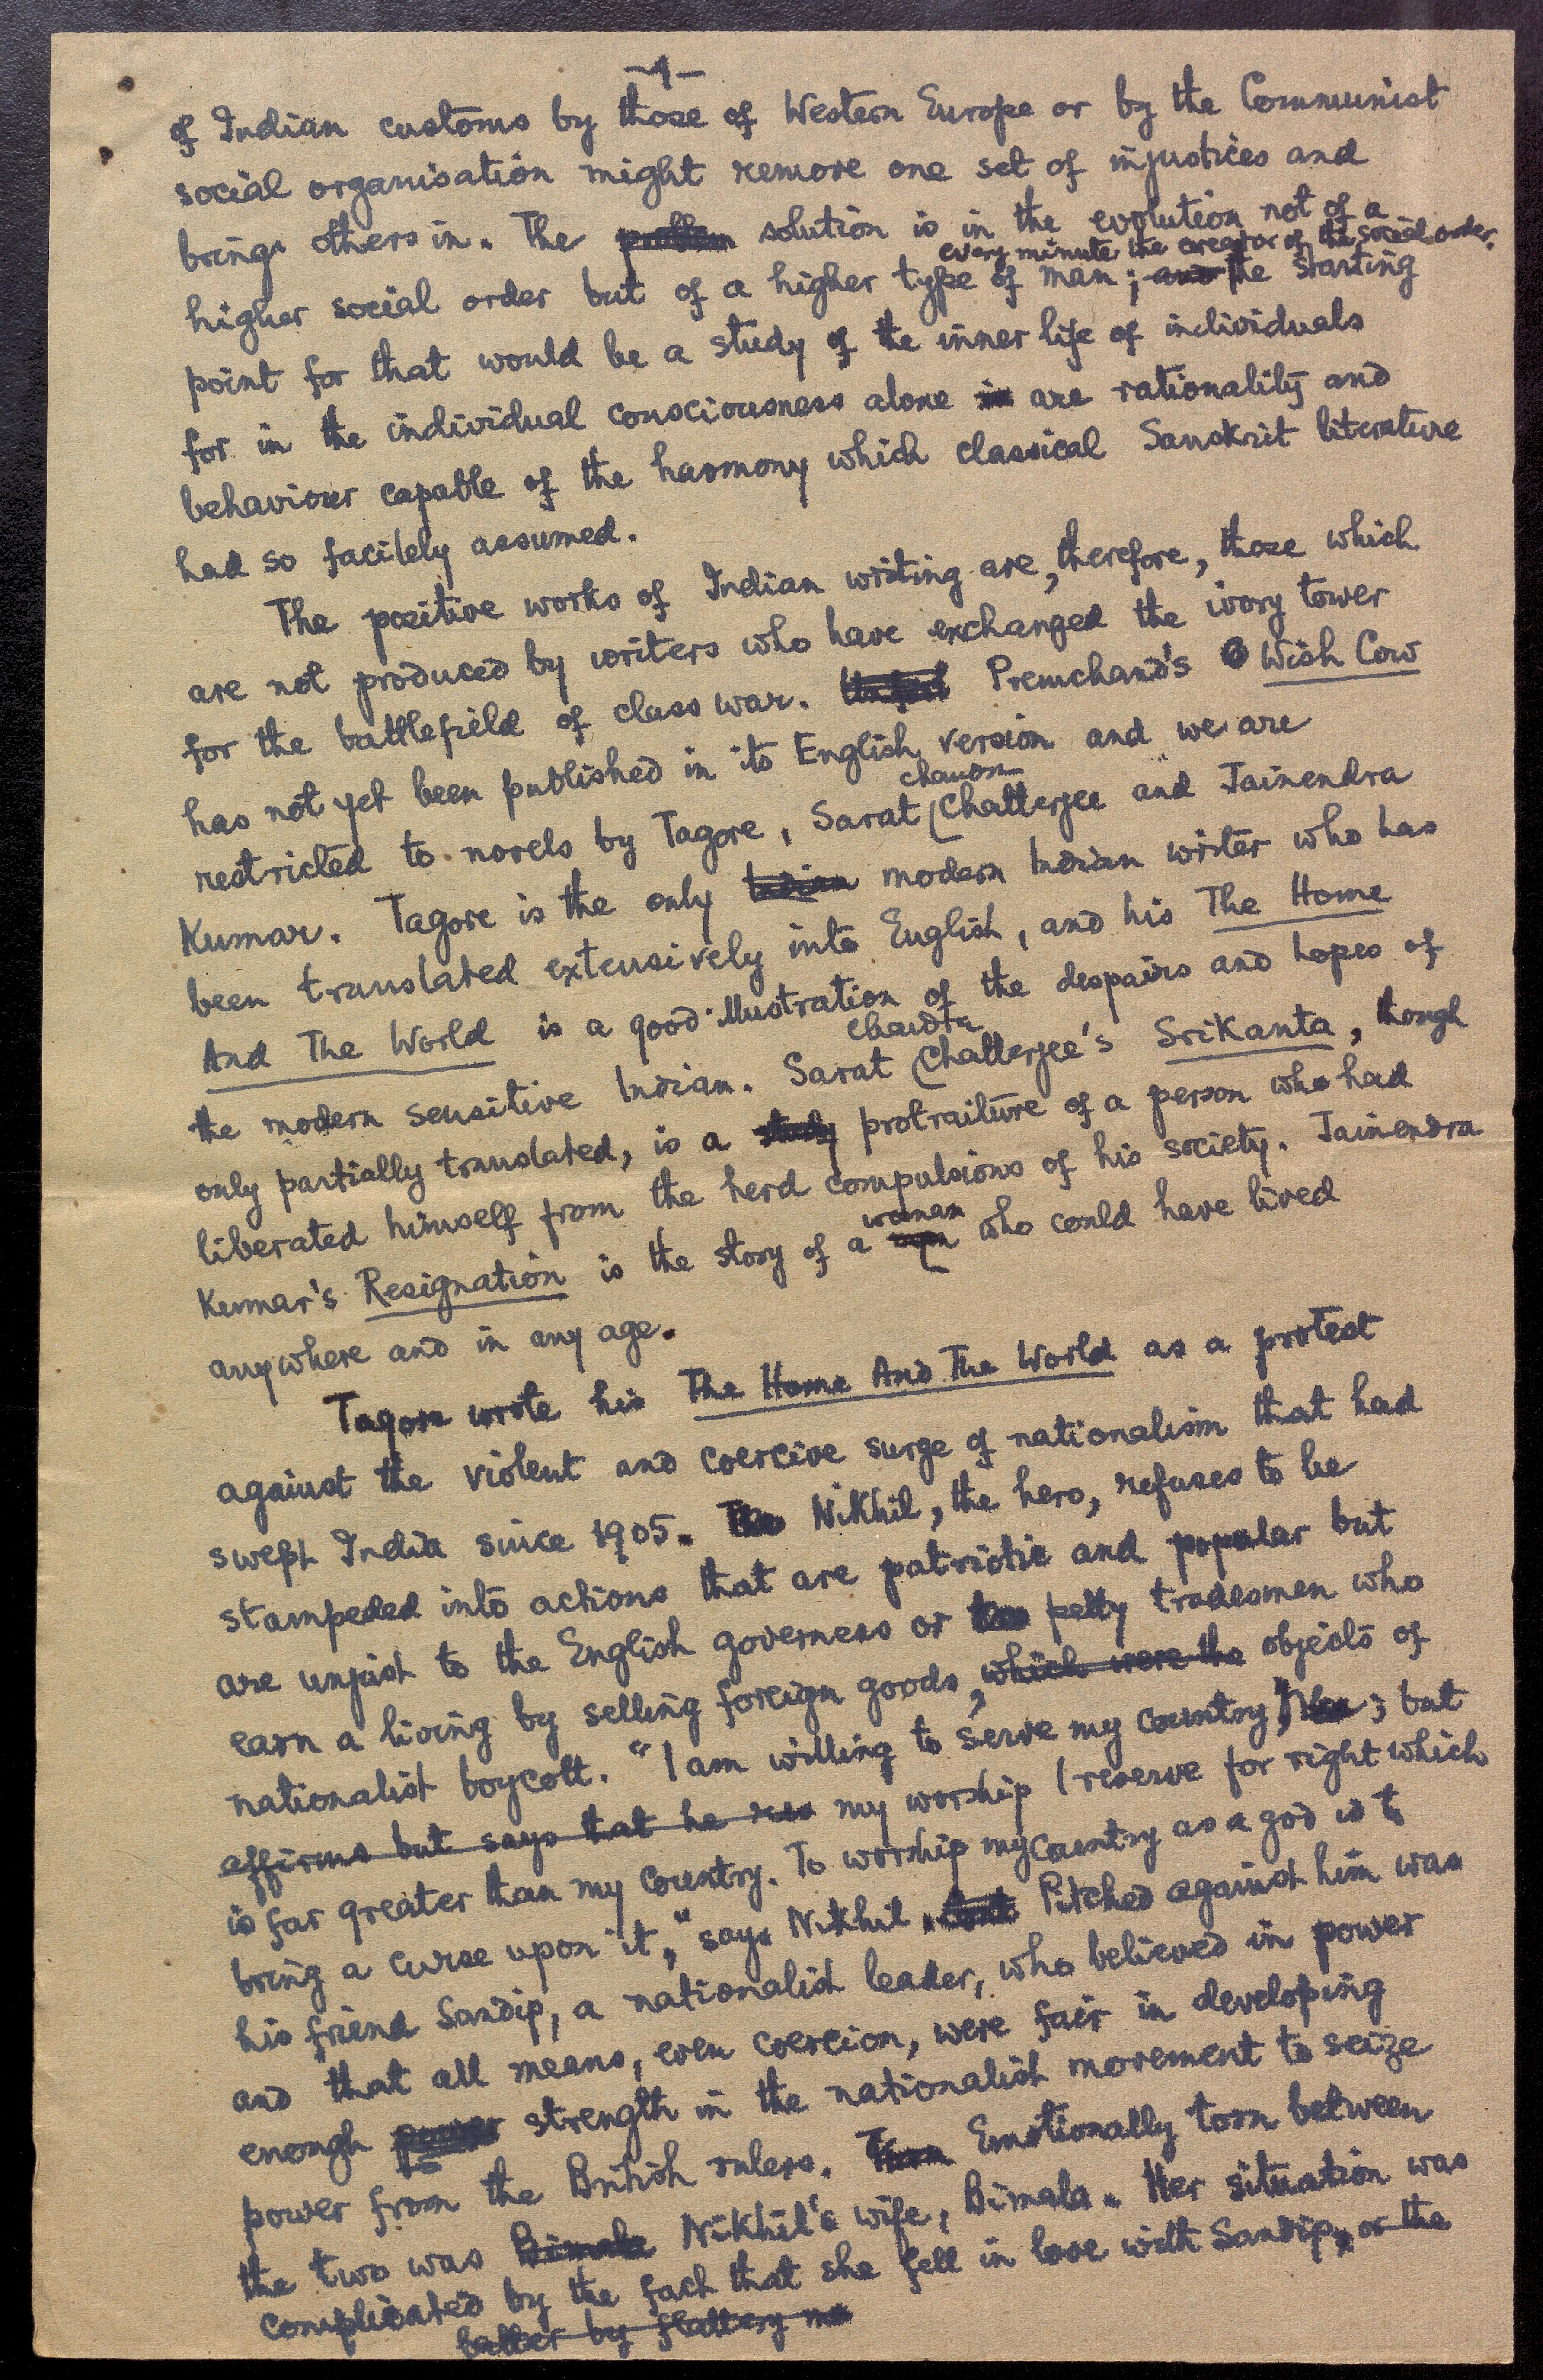 -4-
of Indian customs by those of Western Europe or by the Communist
social organisation might remove one set of injustices and
brings others in. The solution is in the evolution not of a
every minute the creator of the social order.
higher social order but of a higher type of man; and the starting
point for that would be a study of the inner life of individuals
for in the individual consciousness alone in are rationality and
behaviour capable of the harmony which classical Sanskrit literature
had so facilely assumed.
The positive works of Indian writing are, therefore, those which
are not produced by writers who have exchanged the ivory tower
for the battlefield of class war. Premchand's Wish Cow
has not yet been published in its English version and we are
chandra
restricted to novels by Tagore, Sarat Chatterjee and Jainendra
Kumar. Tagore is the only Indian modern Indian writer who has
been translated extensively into English, and his The Home
And The World is a good illustration of the despairs and hopes of
Chandra
the modern sensitive Indian. Sarat Chatterjee's Srikanta, though
only partially translated, is a study protraiture of a person who had
liberated himself from the herd compulsions of his society. Jainendra
woman
Kumar's Resignation is the story of a man who could have lived
anywhere and in any age.
Tagore wrote his The Home And The World as a protest
against the violent and coercive surge of nationalism that had
swept India since 1905. The Nikhil, the hero, refuses to be
stampeded into actions that are patriotic and popular but
are unjust to the English governess or petty tradesmen who
earn a living by selling foreign goods, which were the objects of
nationalist boycott. "I am willing to serve my country," ; but
affirms but says that he my worship I reserve for right which
is far greater than my country. To worship my country as a god is to
bring a curse upon it," says Nikhil. Pitched against him was
his friend Sandip, a nationalist leader, who believed in power
and that all means, even coercion, were fair in developing
enough power strength in the nationalist movement to seize
power from the British rulers. Torn Emotionally torn between
the two was Bimala Nikhil's wife, Bimala. Her situation was
complicated by the fact that she fell in love with Sandip, or the
latter by flattery